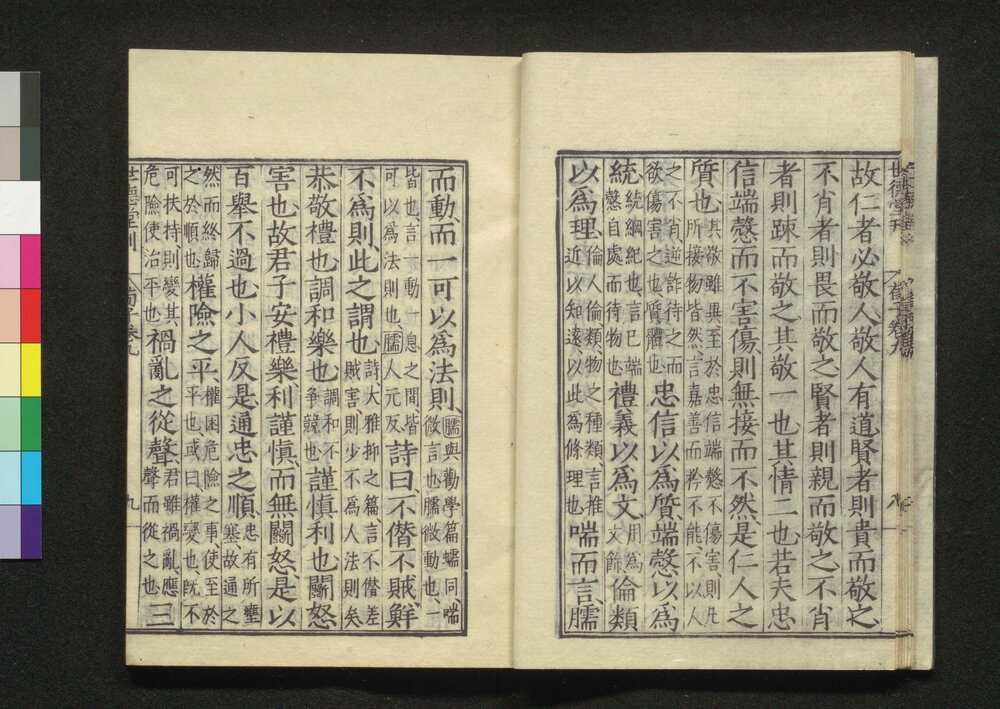 故仁者必敬人敬人有道賢者則貴而敬之
不肖者則畏而敬之賢者則親而敬之不肖
者則疎而敬之其敬一也其情二也若夫忠
信端慤而不害傷則無接而不然是仁人之
質也其敬雖異至於忠信端慤不傷害則凡所接物皆然言嘉善而矜不能不以人
之不肖逆詐待之而欲傷害之也質體也忠信以爲質端慤以爲
統統綱紀也言已端慤自處而待物也禮義以爲文用爲文飾倫類
以爲理倫人倫類物之種類言推近以知遠以此爲條理也喘而言臑
而動而一可以爲法則臑與勸學篇蝡同喘微言也臑微動也一
皆也言一動一息之間皆可以爲法則也臑人元反詩曰不僭不賊鮮
不爲則此之謂也詩大雅抑之篇言不僭差賊害則少不爲人法則矣
恭敬禮也調和樂也調和不爭競也謹慎利也鬭怒
害也故君子安禮樂利謹慎而無鬭怒是以
百舉不過也小人反是通忠之順忠有所壅塞故通之
然而終歸之於順也權險之平權困危險之事使至於平也或曰權變也既不
可扶持則變其危險使治平也禍亂之從聲君雖禍亂應聲而從之也三
世德堂刊
荀子卷九
九